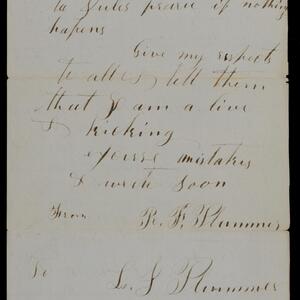 to Jules prarie if nothing
hapens
Give my respects
to all & tell them
that I am a live
& kicking
excuse mistakes
& write soon
From R. F. Plummer
To L. S Plummer